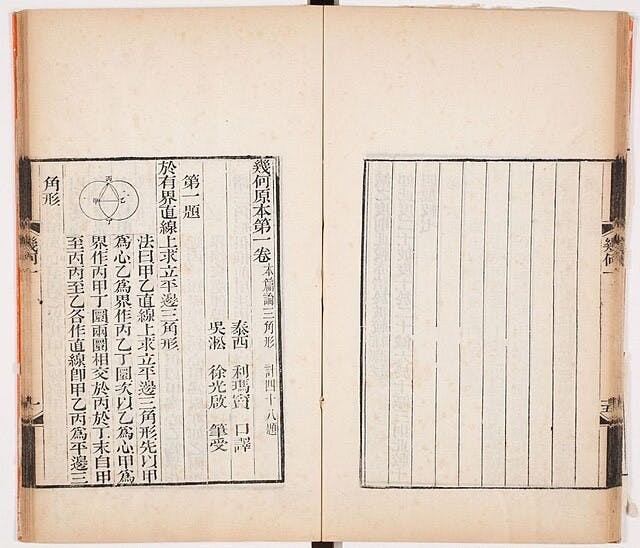 幾何一
幾何原本第一卷 本篇論三角形 計四十八題
泰西 利瑪竇 口譯
吳淞 徐光啟 筆受
第一題
於有界直線上求立平邊三角形
法曰甲乙直線上求立平邊三角形先以甲
爲心乙爲界作丙乙丁圜次以乙爲心甲爲
界作丙甲丁圜兩圜相交於丙於丁末自甲
至丙丙至乙各作直線卽甲乙丙爲平邊三
丙
甲
乙
丁
角形
幾何一
一